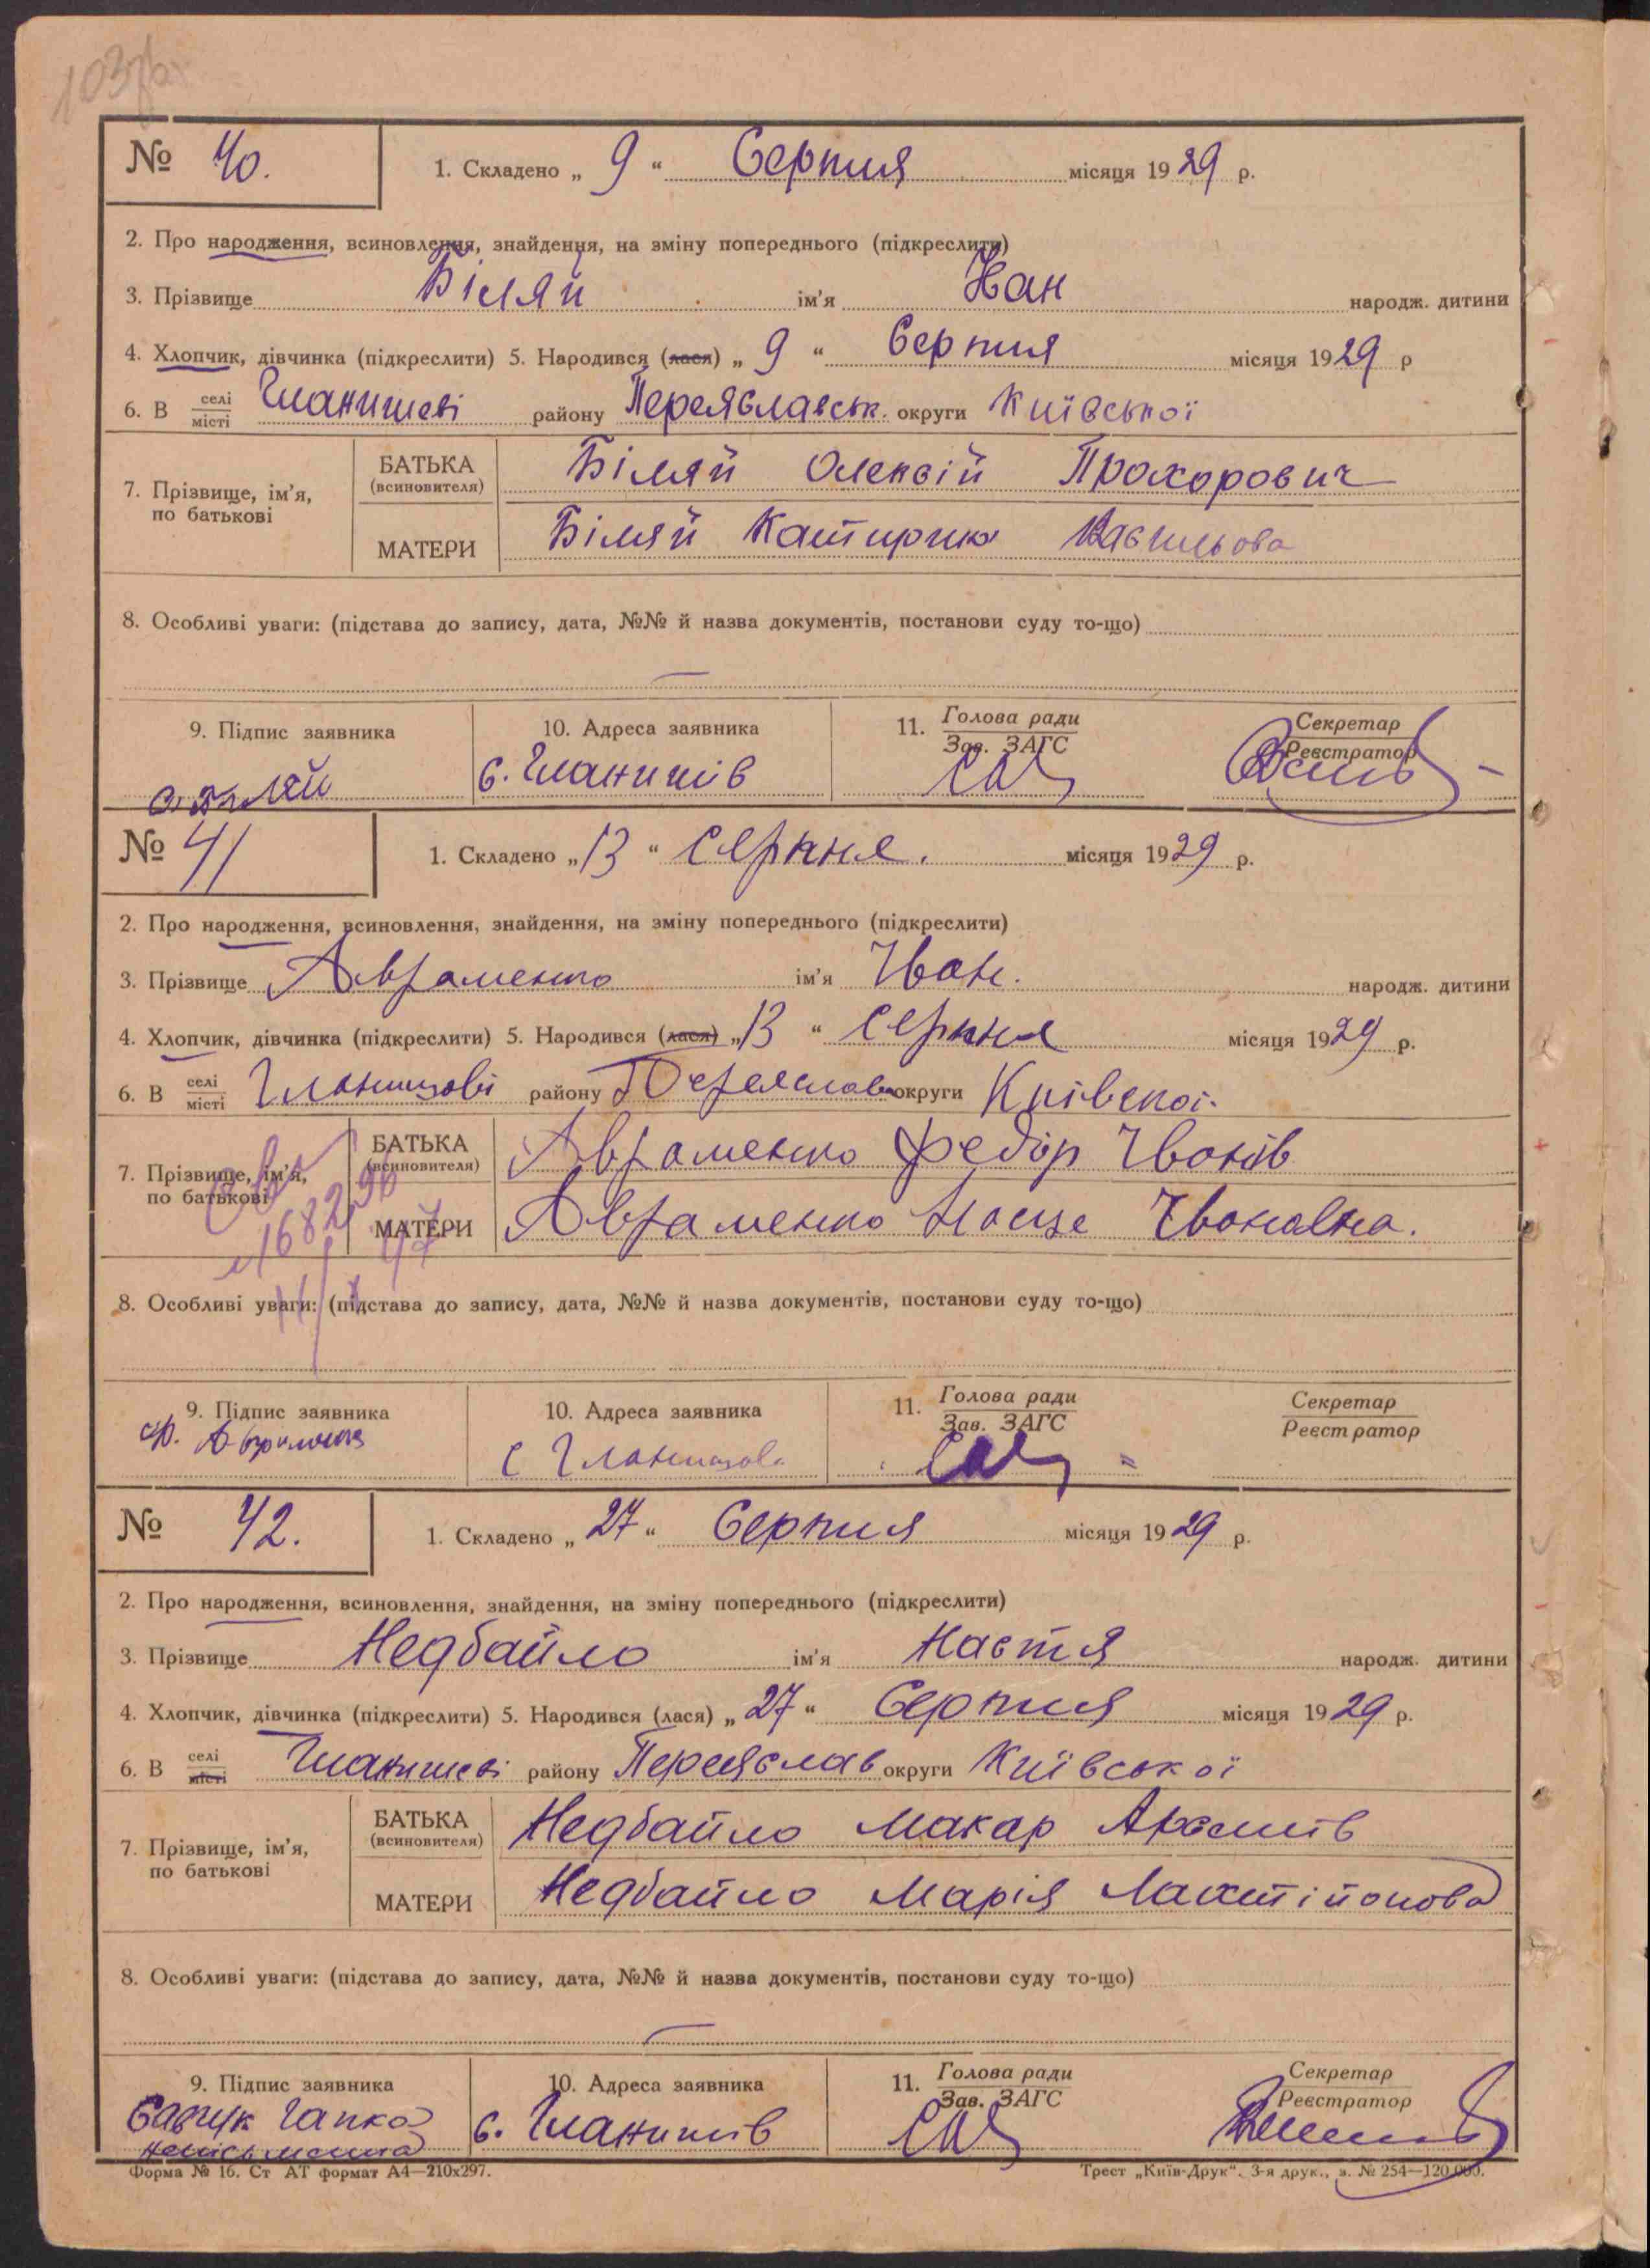 № 40.
1. Складено „ 9 “ Серпня місяця 1929 р.
2. Про народження, всиновлення, знайдення, на зміну попереднього (підкреслити)
3. Прізвище Біляй ім'я Іван народж. дитини
4. Хлопчик, дівчинка (підкреслити) 5. Народився (лася) „ 9 “ Серпня місяця 1929 р
6. В селі місті Гланишеві району Переяславськ. округи Київської
7. Прізвище, ім'я, по батькові
БАТЬКА (всиновителя) Біляй Олексій Прохорович
МАТЕРИ Біляй Катирина Васильова
8. Особливі уваги: (підстава до запису, дата, №№ й назва документів, постанови суду то-що)
9. Підпис заявника
10. Адреса заявника
11. Голова ради Зав. ЗАГС
Секретар Реєстратор
Біляй
с. Гланишів
№ 41
1. Складено „ 13 “ серпня. місяця 1929 р.
2. Про народження, всиновлення, знайдення, на зміну попереднього (підкреслити)
3. Прізвище Авраменко ім'я Іван. народж. дитини
4. Хлопчик, дівчинка (підкреслити) 5. Народився (лася) „ 13 “ серпня місяця 1929 р.
6. В селі місті Гланишові району Переяслав округи Киівскоі.
7. Прізвище, ім'я, по батькові
БАТЬКА (всиновителя) Авраменко Федір Іванів
МАТЕРИ Авраменко Івановна.
8. Особливі уваги: (підстава до запису, дата, №№ й назва документів, постанови суду то-що)
9. Підпис заявника
10. Адреса заявника
11. Голова ради Зав. ЗАГС
Секретар Реєстратор
Ф. Авраменко
с Гланишов
№ 42.
1. Складено „ 27 “ Серпня місяця 1929 р.
2. Про народження, всиновлення, знайдення, на зміну попереднього (підкреслити)
3. Прізвище Недбайло ім'я Настя народж. дитини
4. Хлопчик, дівчинка (підкреслити) 5. Народився (лася) „ 27 “ Серпня місяця 1929 р.
6. В селі місті Гланишеві району Переяслав округи Київської
7. Прізвище, ім'я, по батькові
БАТЬКА (всиновителя) Недбайло Макар
МАТЕРИ Недбайло Марія
8. Особливі уваги: (підстава до запису, дата, №№ й назва документів, постанови суду то-що)
9. Підпис заявника
10. Адреса заявника
11. Голова ради Зав. ЗАГС
Секретар Реєстратор
Савчук Гапка
неписьменна
с. Гланишів
Форма № 16. Ст АТ формат А4—210х297.
Трест „Київ-Друк“. 3-я друк., з. № 254—120.000.